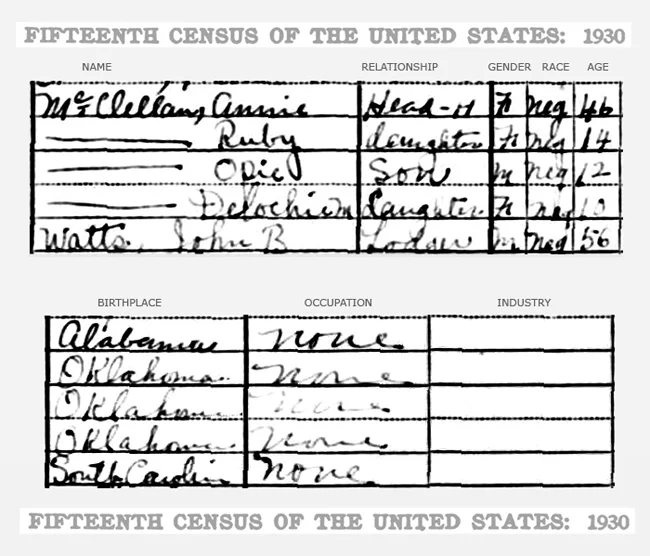 FIFTEENTH CENSUS OF THE UNITED STATES: 1930
NAME RELATIONSHIP GENDER RACE AGE
McClellan, Annie Head-H F Neg 46
Ruby daughter F Neg 14
Opie Son M Neg 12
daughter F Neg 10
Watts, John B Lodger M Neg 56
BIRTHPLACE OCCUPATION INDUSTRY
Alabama none
Oklahoma none
Oklahoma none
Oklahoma none
South Carolina none
FIFTEENTH CENSUS OF THE UNITED STATES: 1930